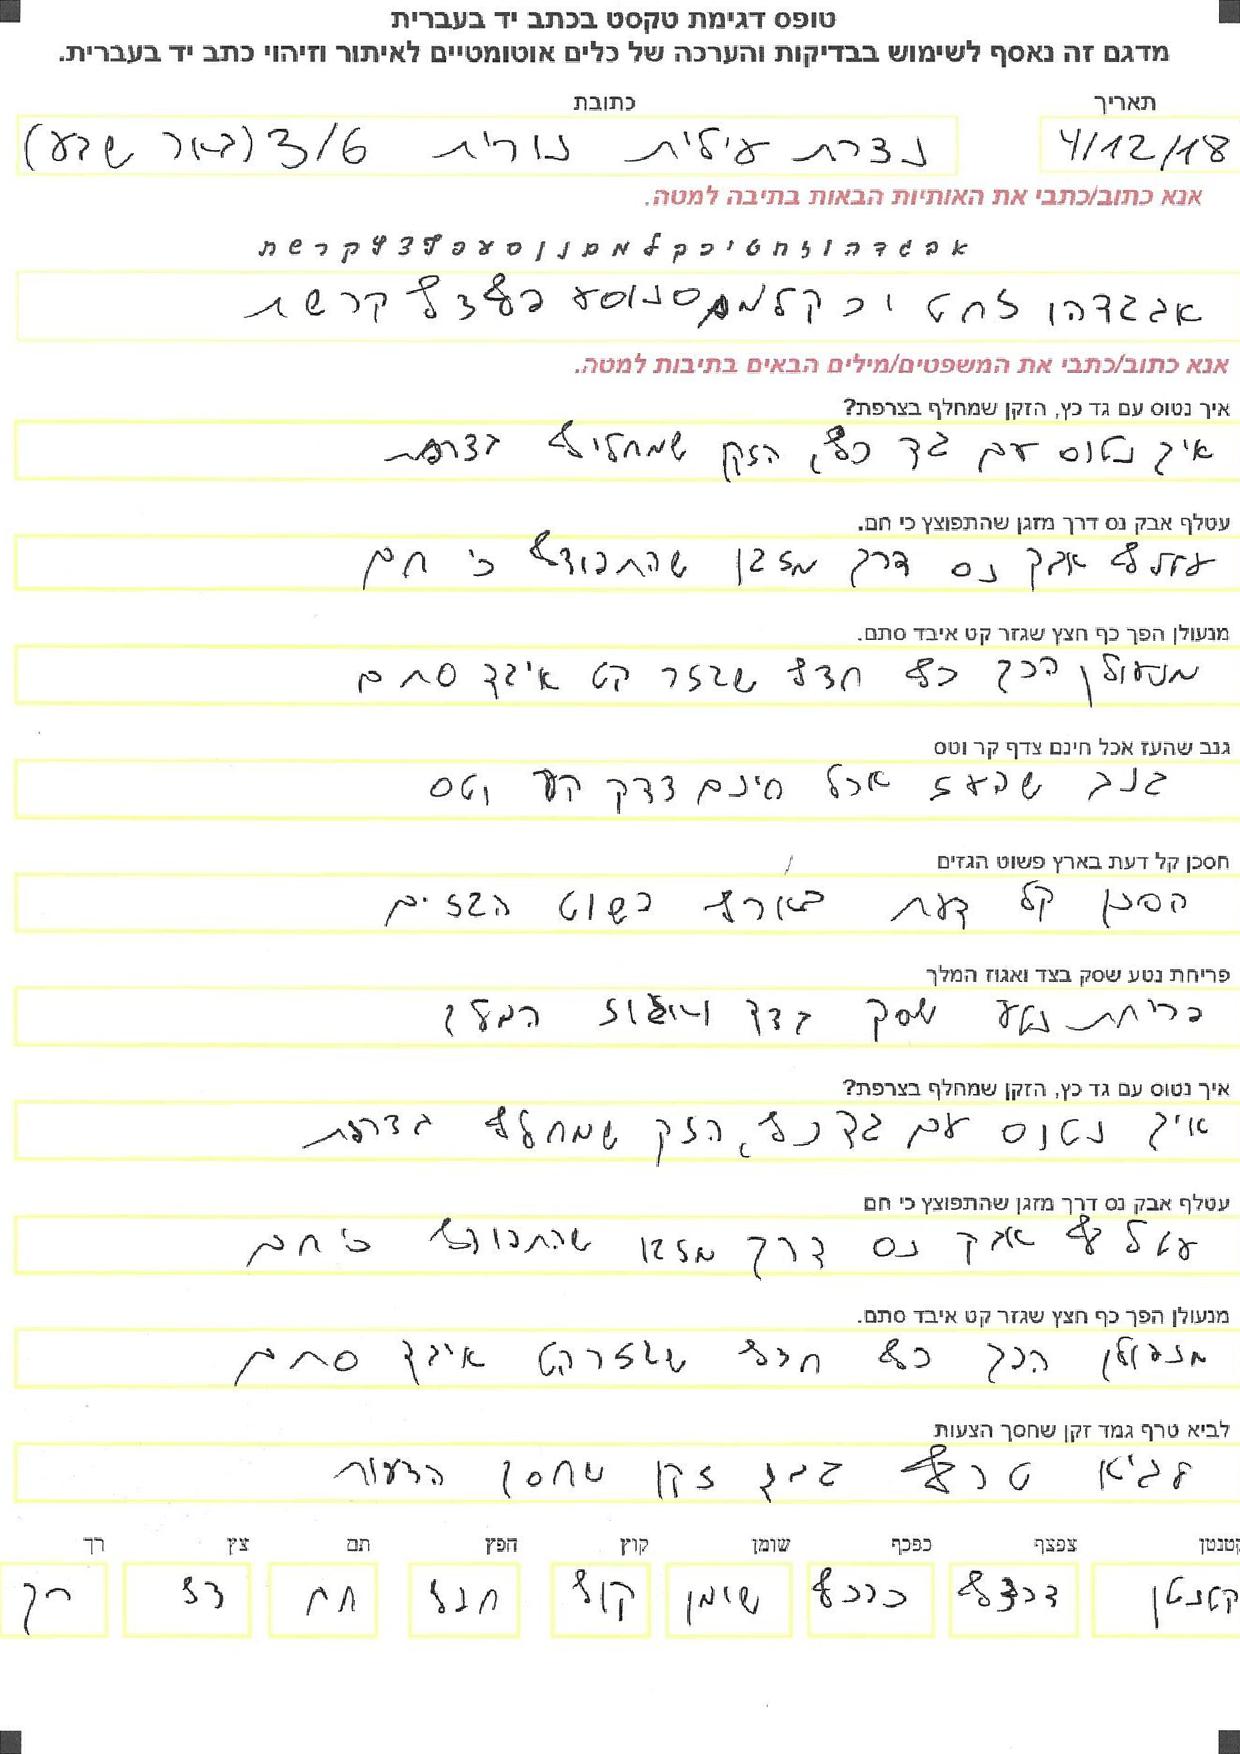 טופס דגימת טקסט בכתב יד בעברית
מדגם זה נאסף לשימוש בבדיקות והערכה של כלים אוטומטיים לאיתור וזיהוי כתב יד בעברית.
תאריך כתובת
4/12/18 נצרת עילית נורית 3/6 (באר שבע)
אנא כתוב/כתבי את האותיות הבאות בתיבה למטה.
א ב ג ד ה ו ז ח ט י כ ך ל מ ם נ ן ס ע פ ף צ ץ ק ר ש ת
אבגדהו זחט י כ ך למם נן סע פף צץ קרשת
אנא כתוב/כתבי את המשפטים/מילים הבאים בתיבות למטה.
איך נטוס עם גד כץ, הזקן שמחלף בצרפת?
איך נטוס עם גד כץ, הזקן שמחליף בצרפת
עטלף אבק נס דרך מזגן שהתפוצץ כי חם.
עטלף אבק נס דרך מזגן שהתפוצץ כי חם
מנעולן הפך כף חצץ שגזר קט איבד סתם.
מנעולן הפך כף חצץ שגזר קט איבד סתם
גנב שהעז אכל חינם צדף קר וטס
גנב שהעז אכל חינם צדק וטס
חסכן קל דעת בארץ פשוט הגזים
חסכן קל דעת בארץ פשוט הגזים
פריחת נטע שסק בצד ואגוז המלך
פריחת נטע שסק בצד ואגוז המלך
איך נטוס עם גד כץ, הזקן שמחלף בצרפת?
איך נטוס עם גד כץ, הזקן שמחלף בצרפת
עטלף אבק נס דרך מזגן שהתפוצץ כי חם
עטלף אבק נס דרך מזגן שהתפוצץ כי חם
מנעולן הפך כף חצץ שגזר קט איבד סתם.
מנעולן הפך כף חצץ שגזר קט איבד סתם
לביא טרף גמד זקן שחסך הצעות
לביא טרף גמד זקן שחסך הצעות
קטנטן צפצף כפכף שומן קוץ חפץ תם צץ רך
קטנטן צפצף כפכף שומן קוץ חפץ תם צץ רך